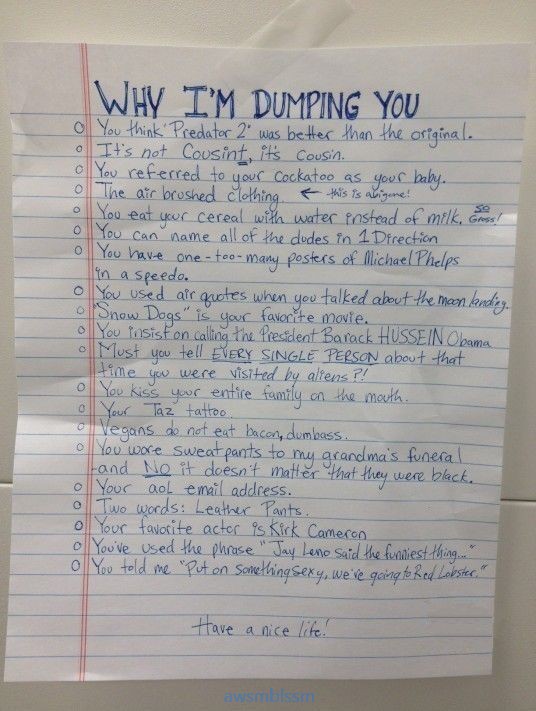 WHY I'M DUMPING YOU
You think "Predator 2" was better than the original.
It's not Cousint, it's cousin.
You referred to your cockatoo as your baby.
The air brushed clothing. ← this is a bigone!
You eat your cereal with water instead of milk. SO Gross!
You can name all of the dudes in 1 Direction
You have one-too-many posters of Michael Phelps
in a speedo.
You used air quotes when you talked about the moon landing.
"Snow Dogs" is your favorite movie.
You insist on calling the President Barack HUSSEIN Obama
Must you tell EVERY SINGLE PERSON about that
time you were visited by aliens?!
You kiss your entire family on the mouth.
Your Taz tattoo.
Vegans do not eat bacon, dumbass.
You wore sweatpants to my grandma's funeral
-and NO it doesn't matter that they were black.
Your aol email address.
Two words: Leather Pants.
Your favorite actor is Kirk Cameron
You've used the phrase "Jay Leno said the funniest thing..."
You told me "Put on something sexy, we're going to Red Lobster."
Have a nice life!
awsmblssm